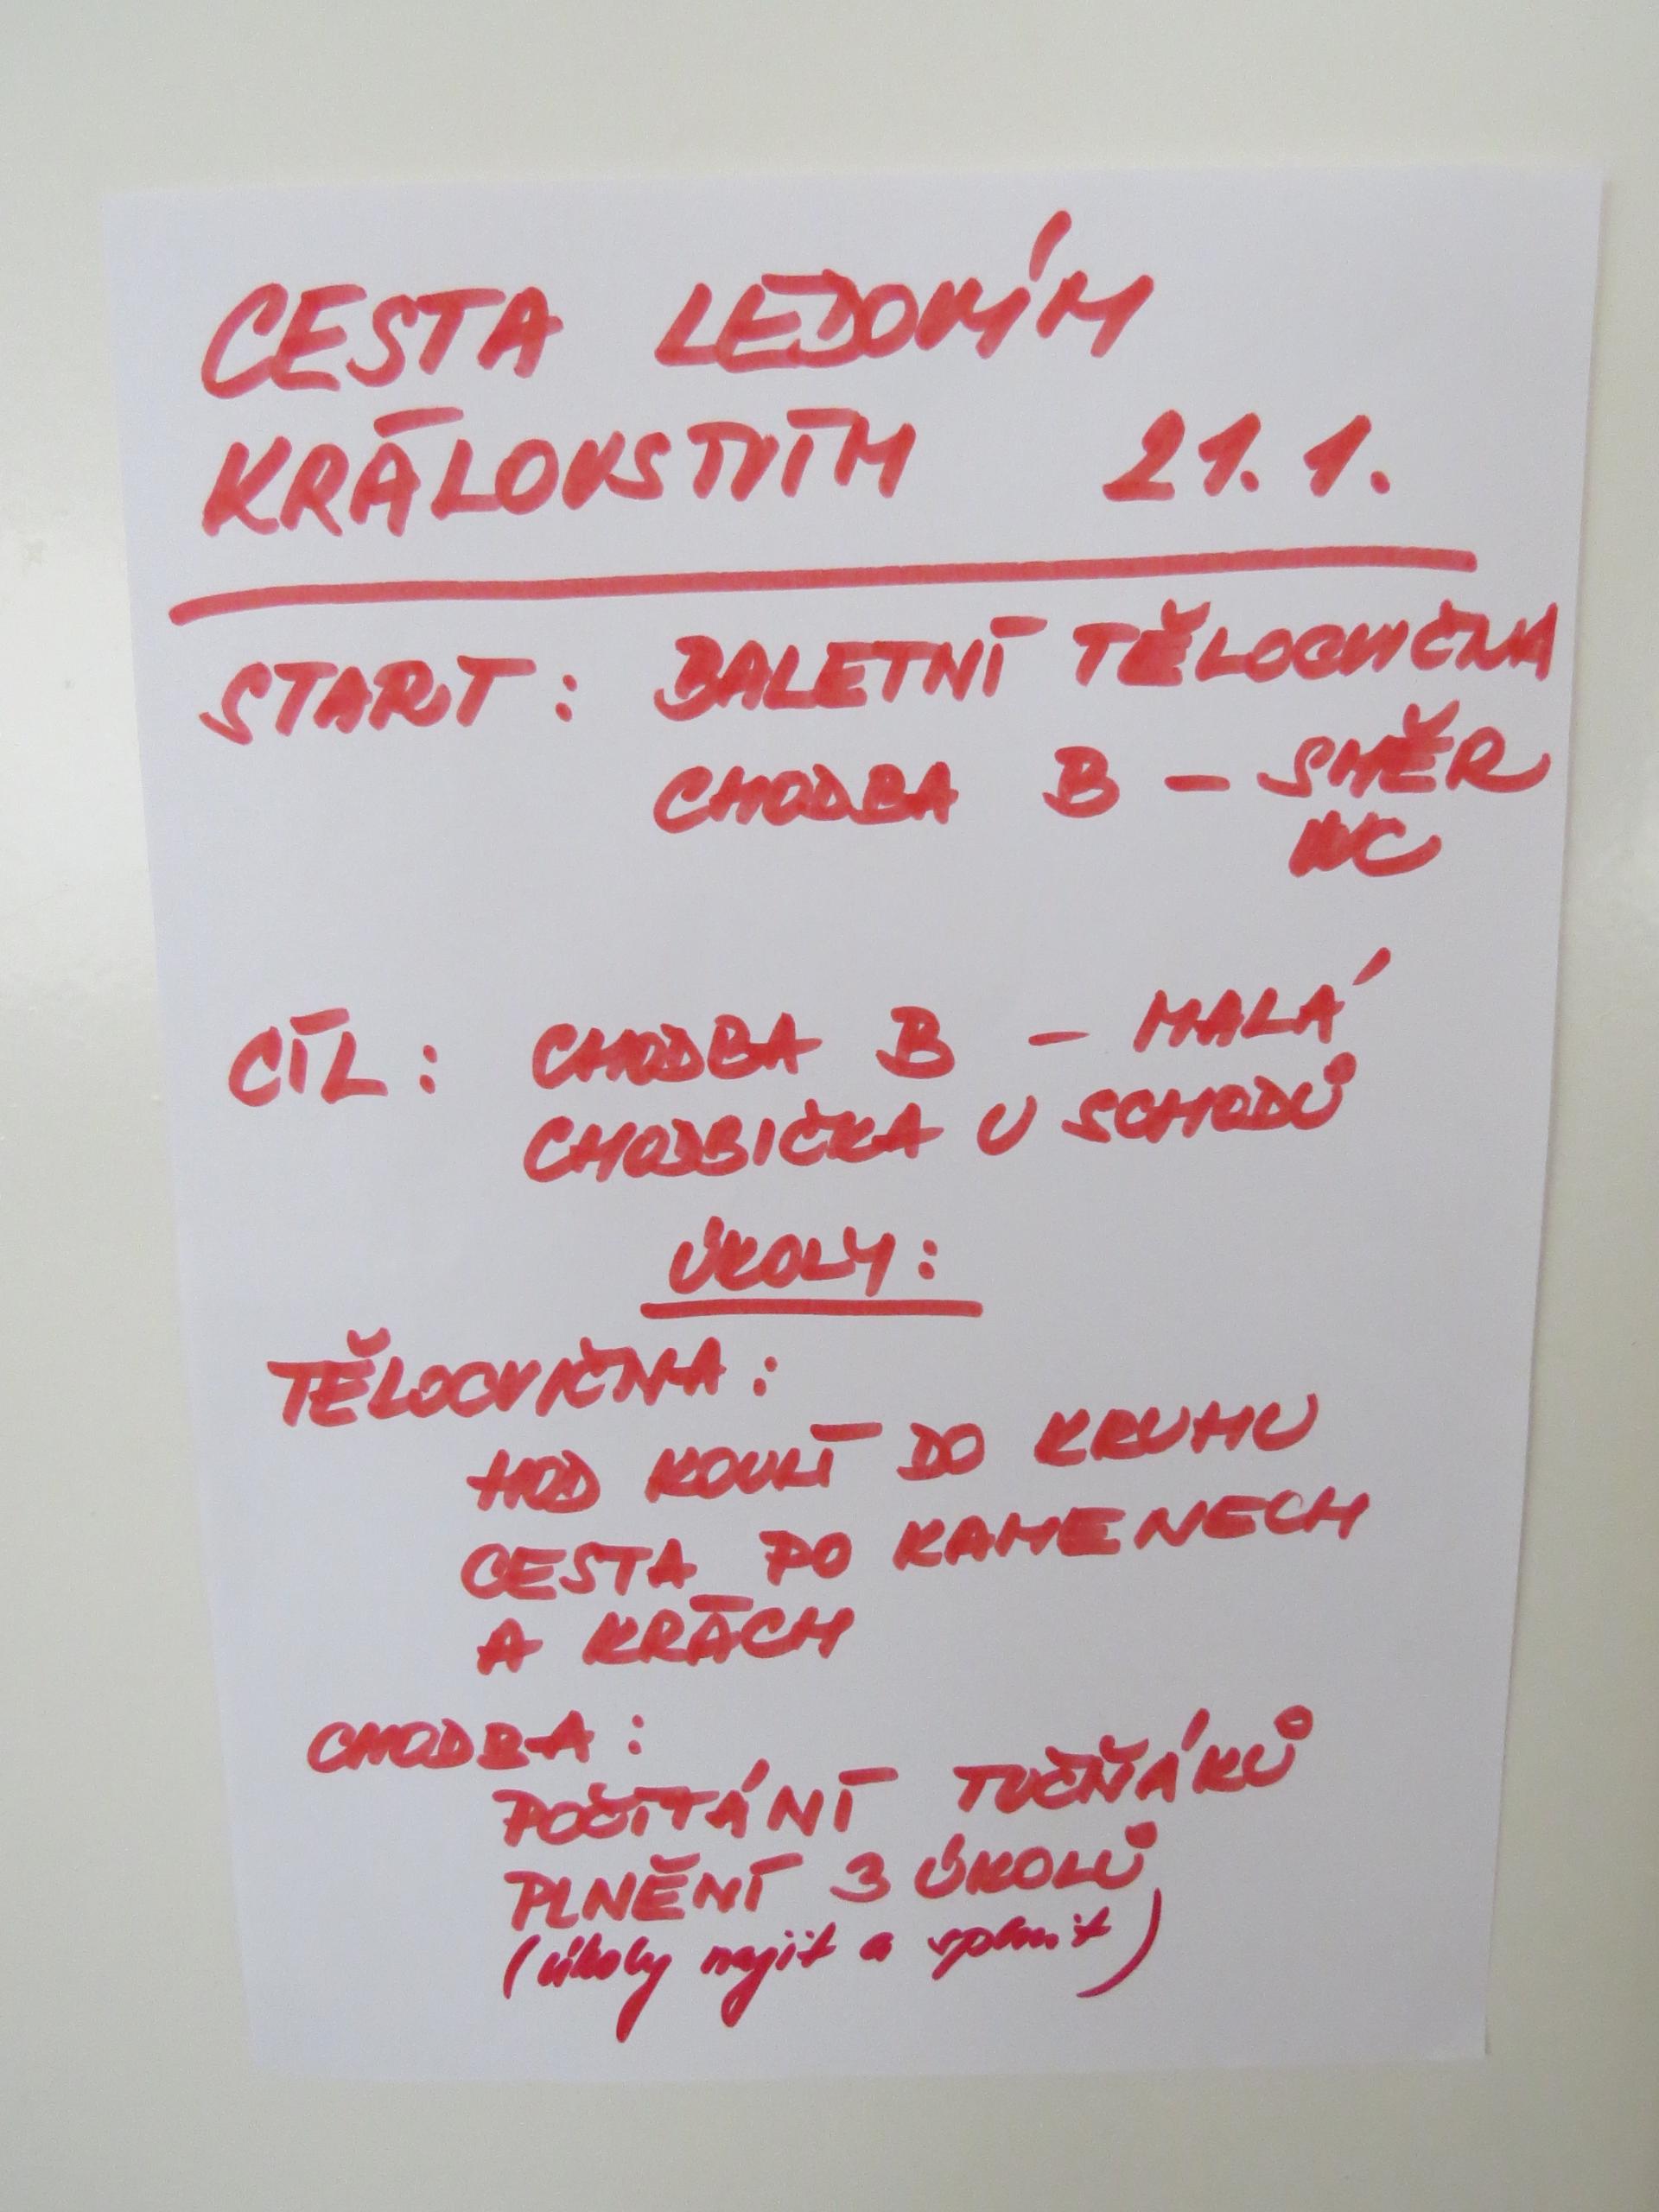 CESTA LEDOVÝM
KRÁLOVSTVÍM 21.1.
START: BALETNÍ TĚLOCVIČNA
CHODBA B - SMĚR
WC
CÍL: CHODBA B - MALÁ
CHODBIČKA U SCHODŮ
ÚKOLY:
TĚLOCVIČNA:
HOD KOULÍ DO KRUHU
CESTA PO KAMENECH
A KRÁCH
CHODBA:
POČÍTÁNÍ TUČŇÁKŮ
PLNĚNÍ 3 ÚKOLŮ
(úkoly najít a splnit)